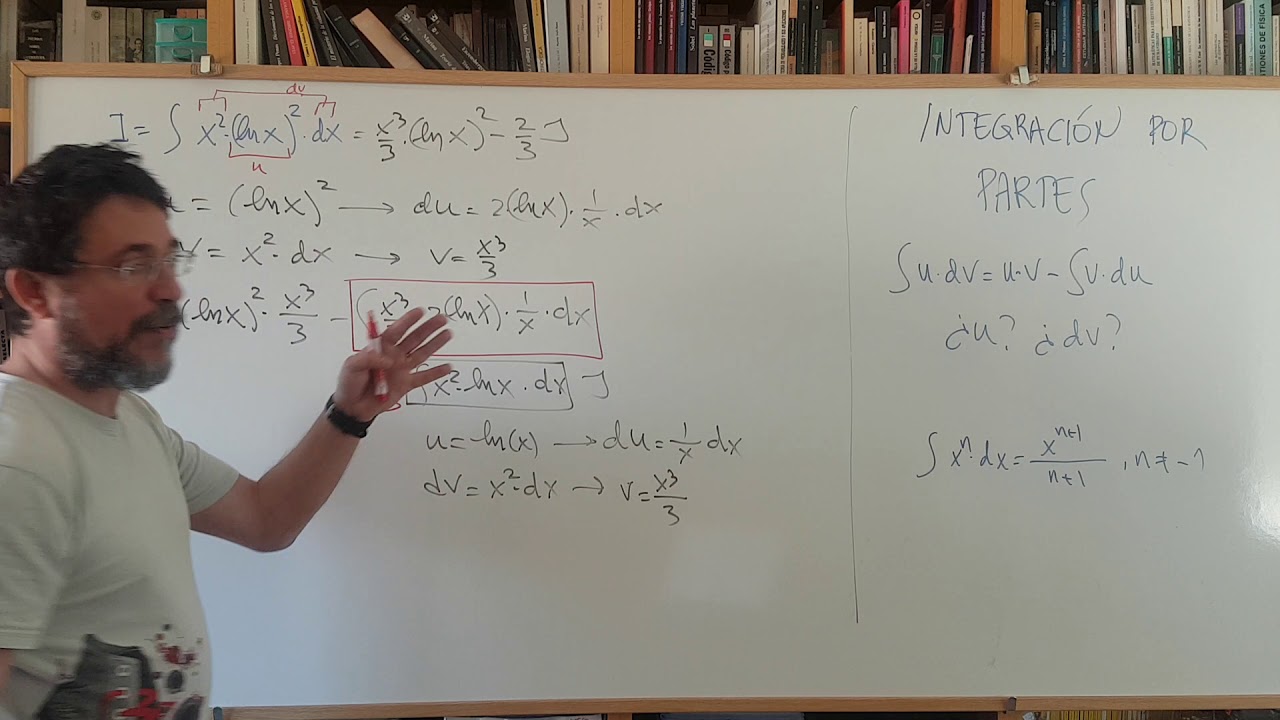 dv
I = ∫ x²·(lnx)²·dx = x³/3·(lnx)² - 2/3 J
u
u = (lnx)² → du = 2(lnx)·1/x·dx
v = x²·dx → v = x³/3
(lnx)²·x³/3 - ∫ x³/3 2(lnx)·1/x·dx
∫x²·lnx·dx J
u = ln(x) → du = 1/x dx
dv = x²·dx → v = x³/3
INTEGRACIÓN POR
PARTES
∫u·dv = u·v - ∫v·du
¿u? ¿dv?
∫xⁿ·dx = xⁿ⁺¹/n+1, n ≠ -1